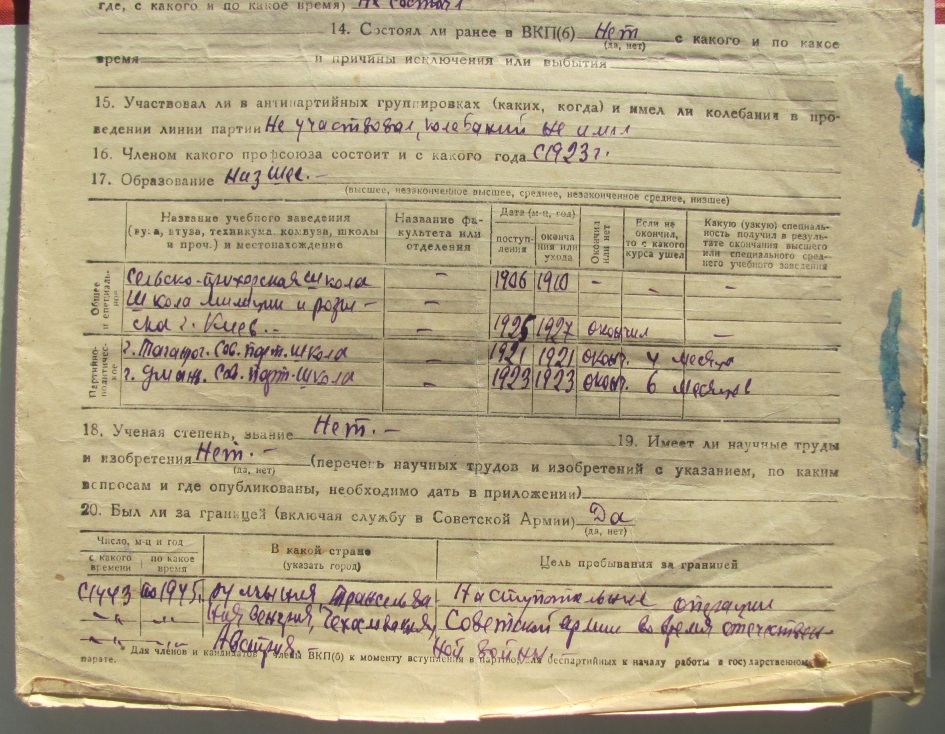 где, с какого и по какое время) Не состоял
14. Состоял ли ранее в ВКП(б) Нет с какого и по какое
(да, нет)
время и причины исключения или выбытия
15. Участвовал ли в антипартийных группировках (каких, когда) и имел ли колебания в про-
ведении линии партии Не участвовал, колебаний не имел
16. Членом какого профсоюза состоит и с какого года С 1923 г.
17. Образование Низшее. –
(высшее, незаконченное высшее, среднее, незаконченное среднее, низшее)
Название учебного заведения
(вуза, втуза, техникума, комвуза, школы
и проч.) и местонахождение
Название фа-
культета или
отделения
Дата (м-ц, год)
поступ-
ления
оконча
ния или
ухода
Окончил
или нет
Если не
окончил,
то с какого
курса ушел
Какую (узкую) специаль-
ность получил в резуль-
тате окончания высшего
или специального сред-
него учебного заведения
Общее
и специаль-
ное
Сельско-приходская школа – 1906 1910 – – –
Школа милиции и розы- –
ска г. Киев. – – 1925 1927 окончил –
Партийно-
политичес-
кое
г. Таганрог. Сов. парт. школа – 1921 1921 оконч. 4 месяца
г. Умань. Сов. парт. школа – 1923 1923 оконч. 6 месяцев
18. Ученая степень, звание Нет. – 19. Имеет ли научные труды
и изобретения Нет. – (перечень научных трудов и изобретений с указанием, по каким
(да, нет)
вопросам и где опубликованы, необходимо дать в приложении)
20. Был ли за границей (включая службу в Советской Армии) Да
(да, нет)
Число, м-ц и год
с какого
времени
по какое
время
В какой стране
(указать город)
Цель пребывания за границей
С 1943 по 1945 г. Румыния, Трансильва Наступательные операции
–"– –"– ния, Венгрия, Чехословакия, Советской армии во время отечествен-
–"– –"– Австрия. ной войны.
* Для членов и кандидатов в члены ВКП(б) к моменту вступления в партию, для беспартийных к началу работы в государственном
парате.